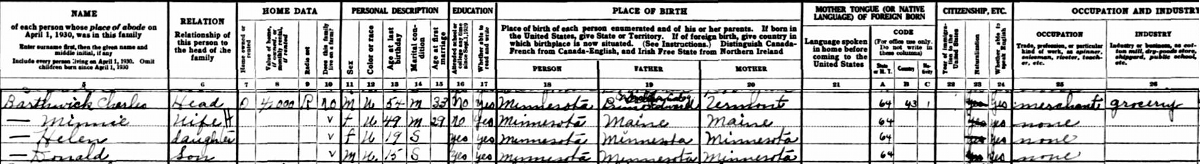 NAME
of each person whose place of abode on
April 1, 1930, was in this family
Enter surname first, then the given name and
middle initial, if any
Include every person living on April 1, 1930. Omit
children born since April 1, 1930
RELATION
Relationship of this
person to the head of the
family
HOME DATA
Home owned or rented
Radio set
Does this family live on a farm?
PERSONAL DESCRIPTION
Sex
Color or race
Age at last birthday
Marital condition
Age at first marriage
EDUCATION
Whether able to read and write
PLACE OF BIRTH
Place of birth of each person enumerated and of his or her parents. If born in
the United States, give State or Territory. If of foreign birth, give country in
which birthplace is now situated. (See Instructions.) Distinguish Canada-
French from Canada-English, and Irish Free State from Northern Ireland
PERSON
FATHER
MOTHER
MOTHER TONGUE (OR NATIVE
LANGUAGE) OF FOREIGN BORN
Language spoken
in home before
coming to the
United States
CODE
(For office use only.
Do not write in
these columns)
State or M. T.
Country
Nativity
CITIZENSHIP, ETC.
Naturalization
Whether able to speak English
OCCUPATION AND INDUSTRY
OCCUPATION
Trade, profession, or particular
kind of work, as spinner,
salesman, riveter, teach-
er, etc.
INDUSTRY
Industry or business, as cot-
ton mill, dry-goods store,
shipyard, public school,
etc.
5 6 7 8 9 10 11 12 13 14 15 16 17 18 19 20 21 A B C 22 23 24 25 26
Barthwick Charles Head O 4,000 R no M W 54 M 33 no yes Minnesota Vermont 64 43 1 yes merchant grocery
— Minnie Wife H v F W 49 M 29 no yes Minnesota Maine Maine 64 yes none
— Helen daughter v F W 19 S yes yes Minnesota Minnesota Minnesota 64 yes none
— Donald Son v M W 15 S yes yes Minnesota Minnesota Minnesota 64 yes none